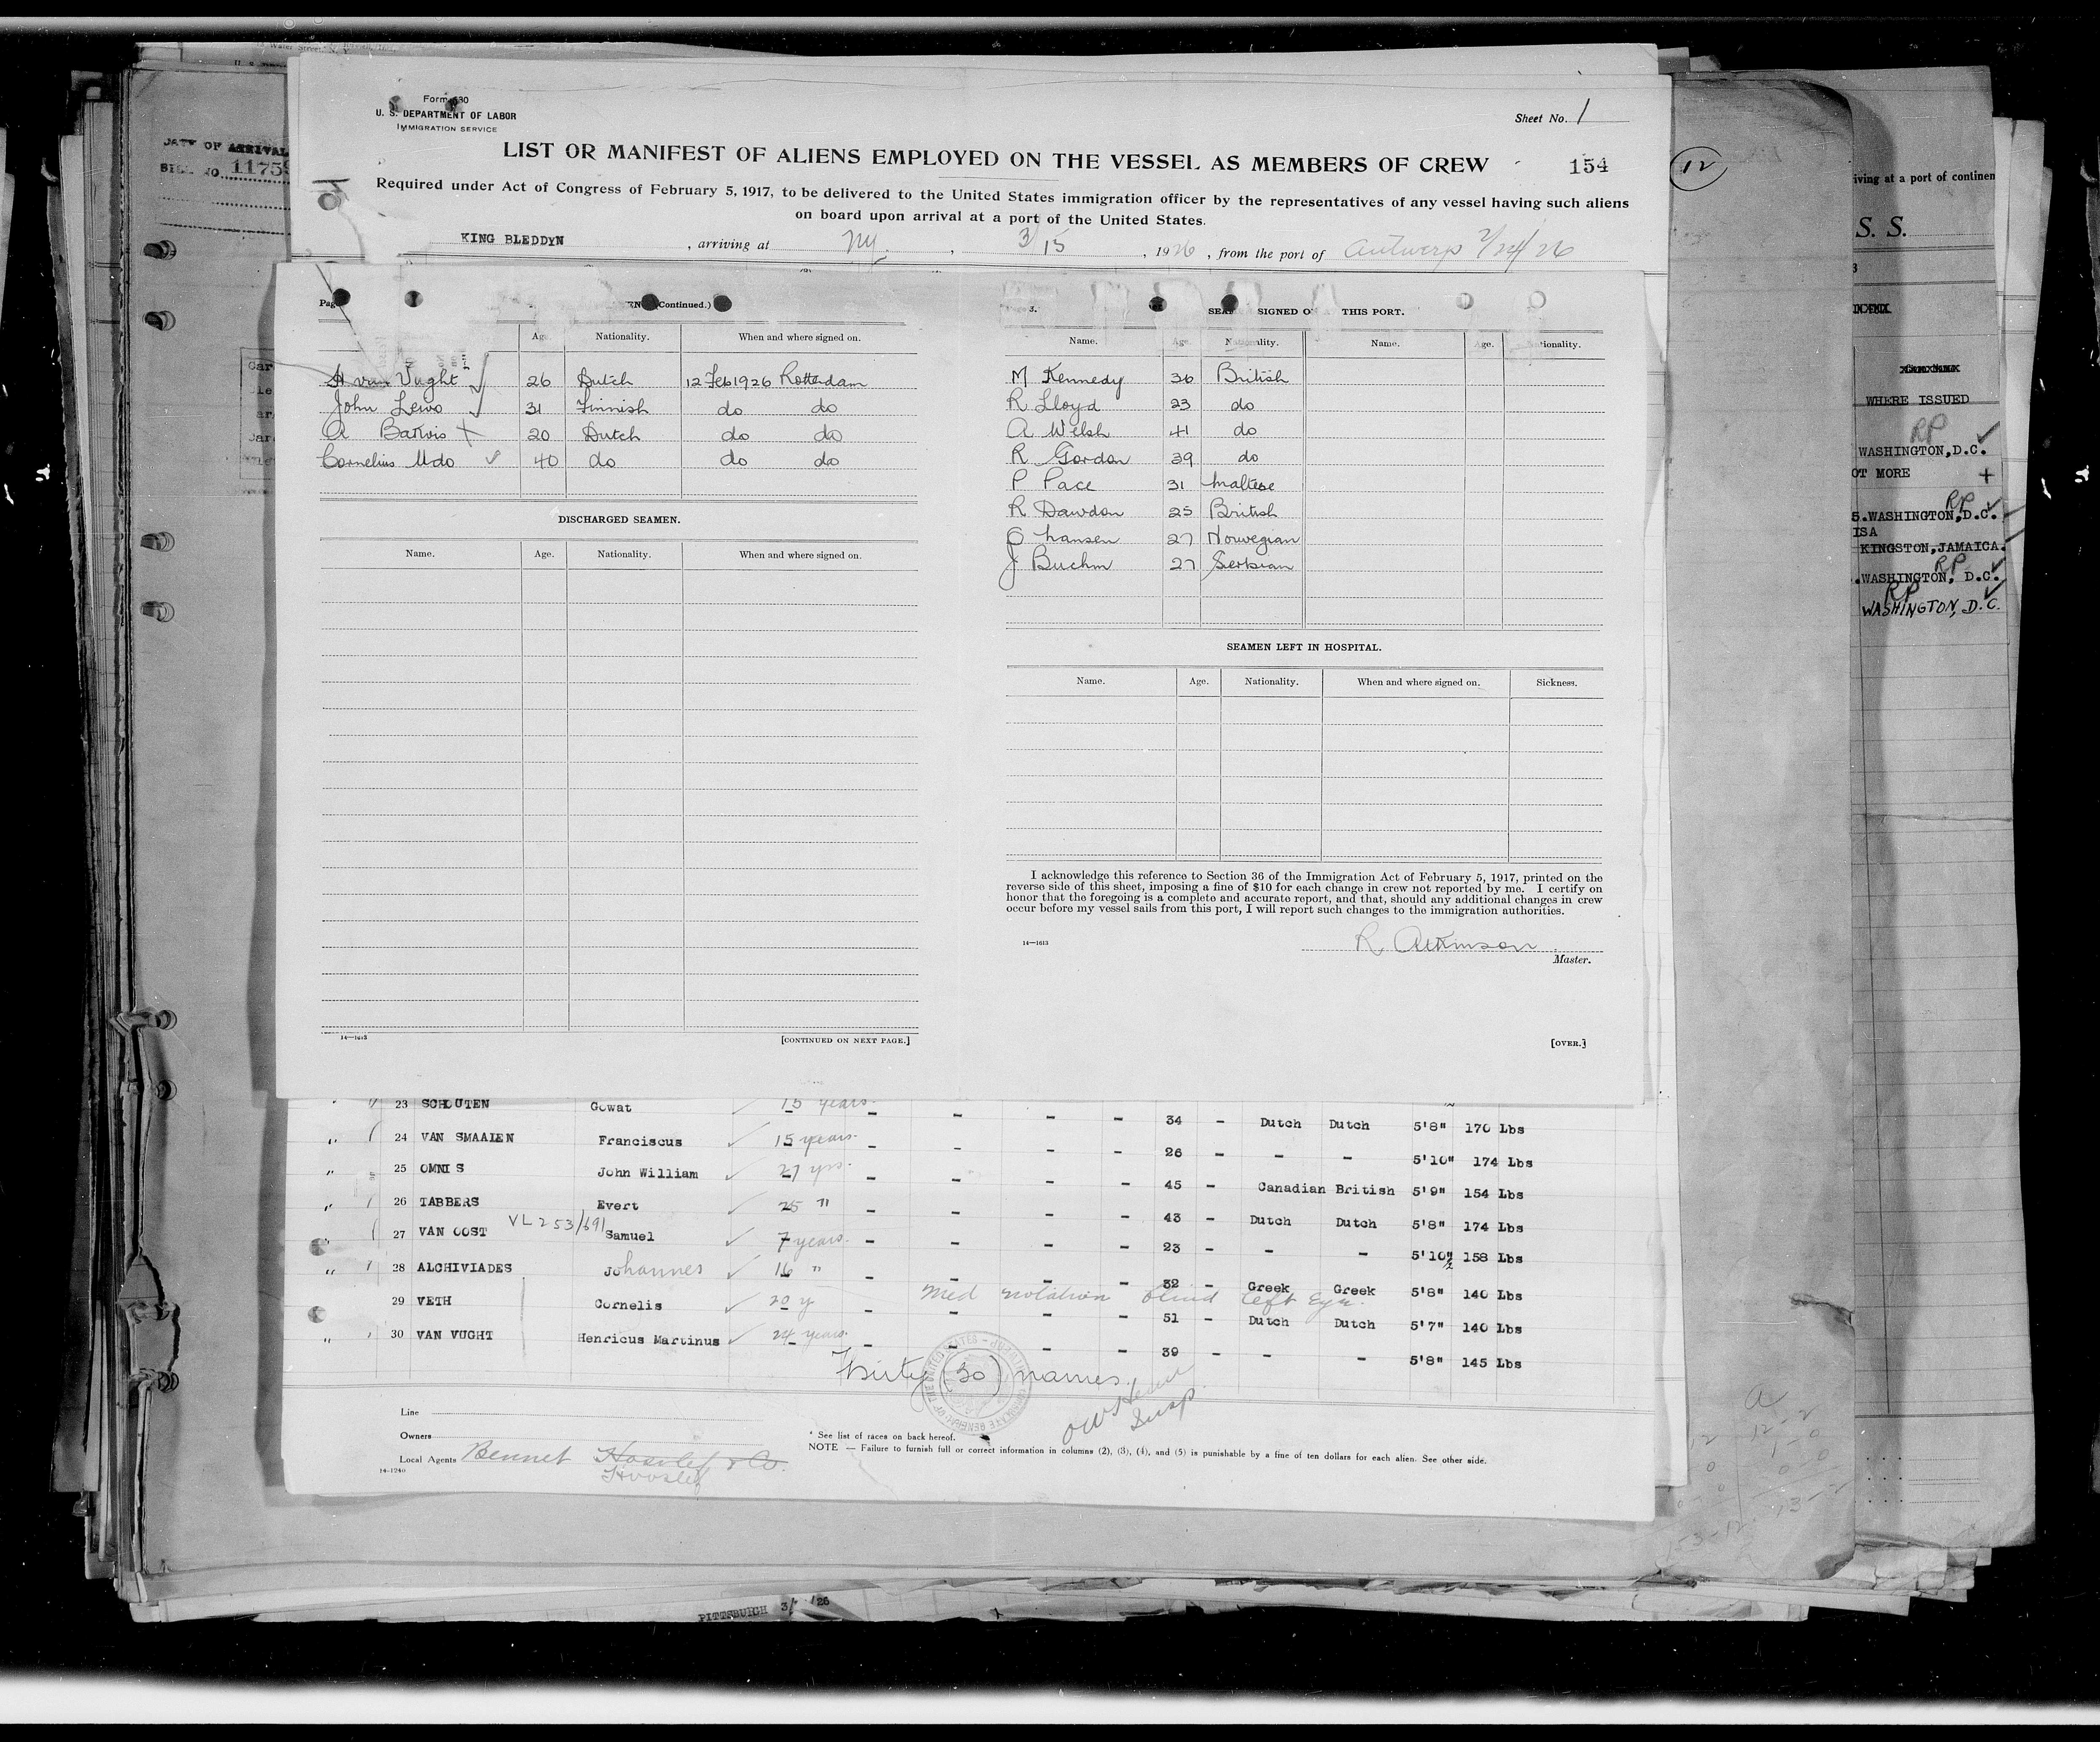 Form 680
U. S. DEPARTMENT OF LABOR
IMMIGRATION SERVICE
Sheet No. 1
LIST OR MANIFEST OF ALIENS EMPLOYED ON THE VESSEL AS MEMBERS OF CREW
154
Required under Act of Congress of February 5, 1917, to be delivered to the United States immigration officer by the representatives of any vessel having such aliens
on board upon arrival at a port of the United States.
KING BLEDDYN , arriving at NY. , 3/15 , 1926 , from the port of Antwerp 2/24/26
(Continued.)
Age. Nationality. When and where signed on.
H van Vught 26 Dutch 12 Feb 1926 Rotterdam
John Lewo 31 Finnish do do
A 20 Dutch do do
Cornelius Udo 40 do do do
DISCHARGED SEAMEN.
Name. Age. Nationality. When and where signed on.
14—1613
[CONTINUED ON NEXT PAGE.]
3.
SIGNED O THIS PORT.
Name. Age. Nationality. Name. Age. Nationality.
M Kennedy 36 British
R Lloyd 23 do
A Welsh 41 do
R Gordon 39 do
P Pace 31 Maltese
R Dawdon 25 British
O Hansen 27 Norwegian
J Buchm 27 Serbian
SEAMEN LEFT IN HOSPITAL.
Name. Age. Nationality. When and where signed on. Sickness.
I acknowledge this reference to Section 36 of the Immigration Act of February 5, 1917, printed on the
reverse side of this sheet, imposing a fine of $10 for each change in crew not reported by me. I certify on
honor that the foregoing is a complete and accurate report, and that, should any additional changes in crew
occur before my vessel sails from this port, I will report such changes to the immigration authorities.
14—1613
R. Atkinson
Master.
[OVER.]
23 SCHOUTEN Gowat 15 years - - - - 34 - Dutch Dutch 5'8" 170 Lbs
24 VAN SMAALEN Franciscus 15 years - - - - 26 - - - 5'10" 174 Lbs
25 OMNIS John William 27 yrs - - - - 45 - Canadian British 5'9" 154 Lbs
26 TABBERS Evert 25 " - - - - 43 - Dutch Dutch 5'8" 174 Lbs
27 VAN OOST VL253/691 Samuel 7 years - - - - 23 - - - 5'10½" 158 Lbs
28 ALCHIVIADES Johannes 16 " - - - - 32 - Greek Greek 5'8" 140 Lbs
Med notation blind left Eye.
29 VETH Cornelis 20 y - - - - 51 - Dutch Dutch 5'7" 140 Lbs
30 VAN VUGHT Henricus Martinus 24 years - - - - 39 - - - 5'8" 145 Lbs
Thirty (30) names.
Insp
Line
Owners
Local Agents Bennet Hoosley & Co.
Hoosley
14-1240
* See list of races on back hereof.
NOTE — Failure to furnish full or correct information in columns (2), (3), (4), and (5) is punishable by a fine of ten dollars for each alien. See other side.
DATE OF ARRIVAL
11759
12
iving at a port of continen
S. S.
WHERE ISSUED
RP
WASHINGTON, D.C.
OT MORE +
RP
5.WASHINGTON, D.C.
ISA
KINGSTON, JAMAICA.
RP
.WASHINGTON, D.C.
RP
WASHINGTON, D.C.
PITTSBURGH